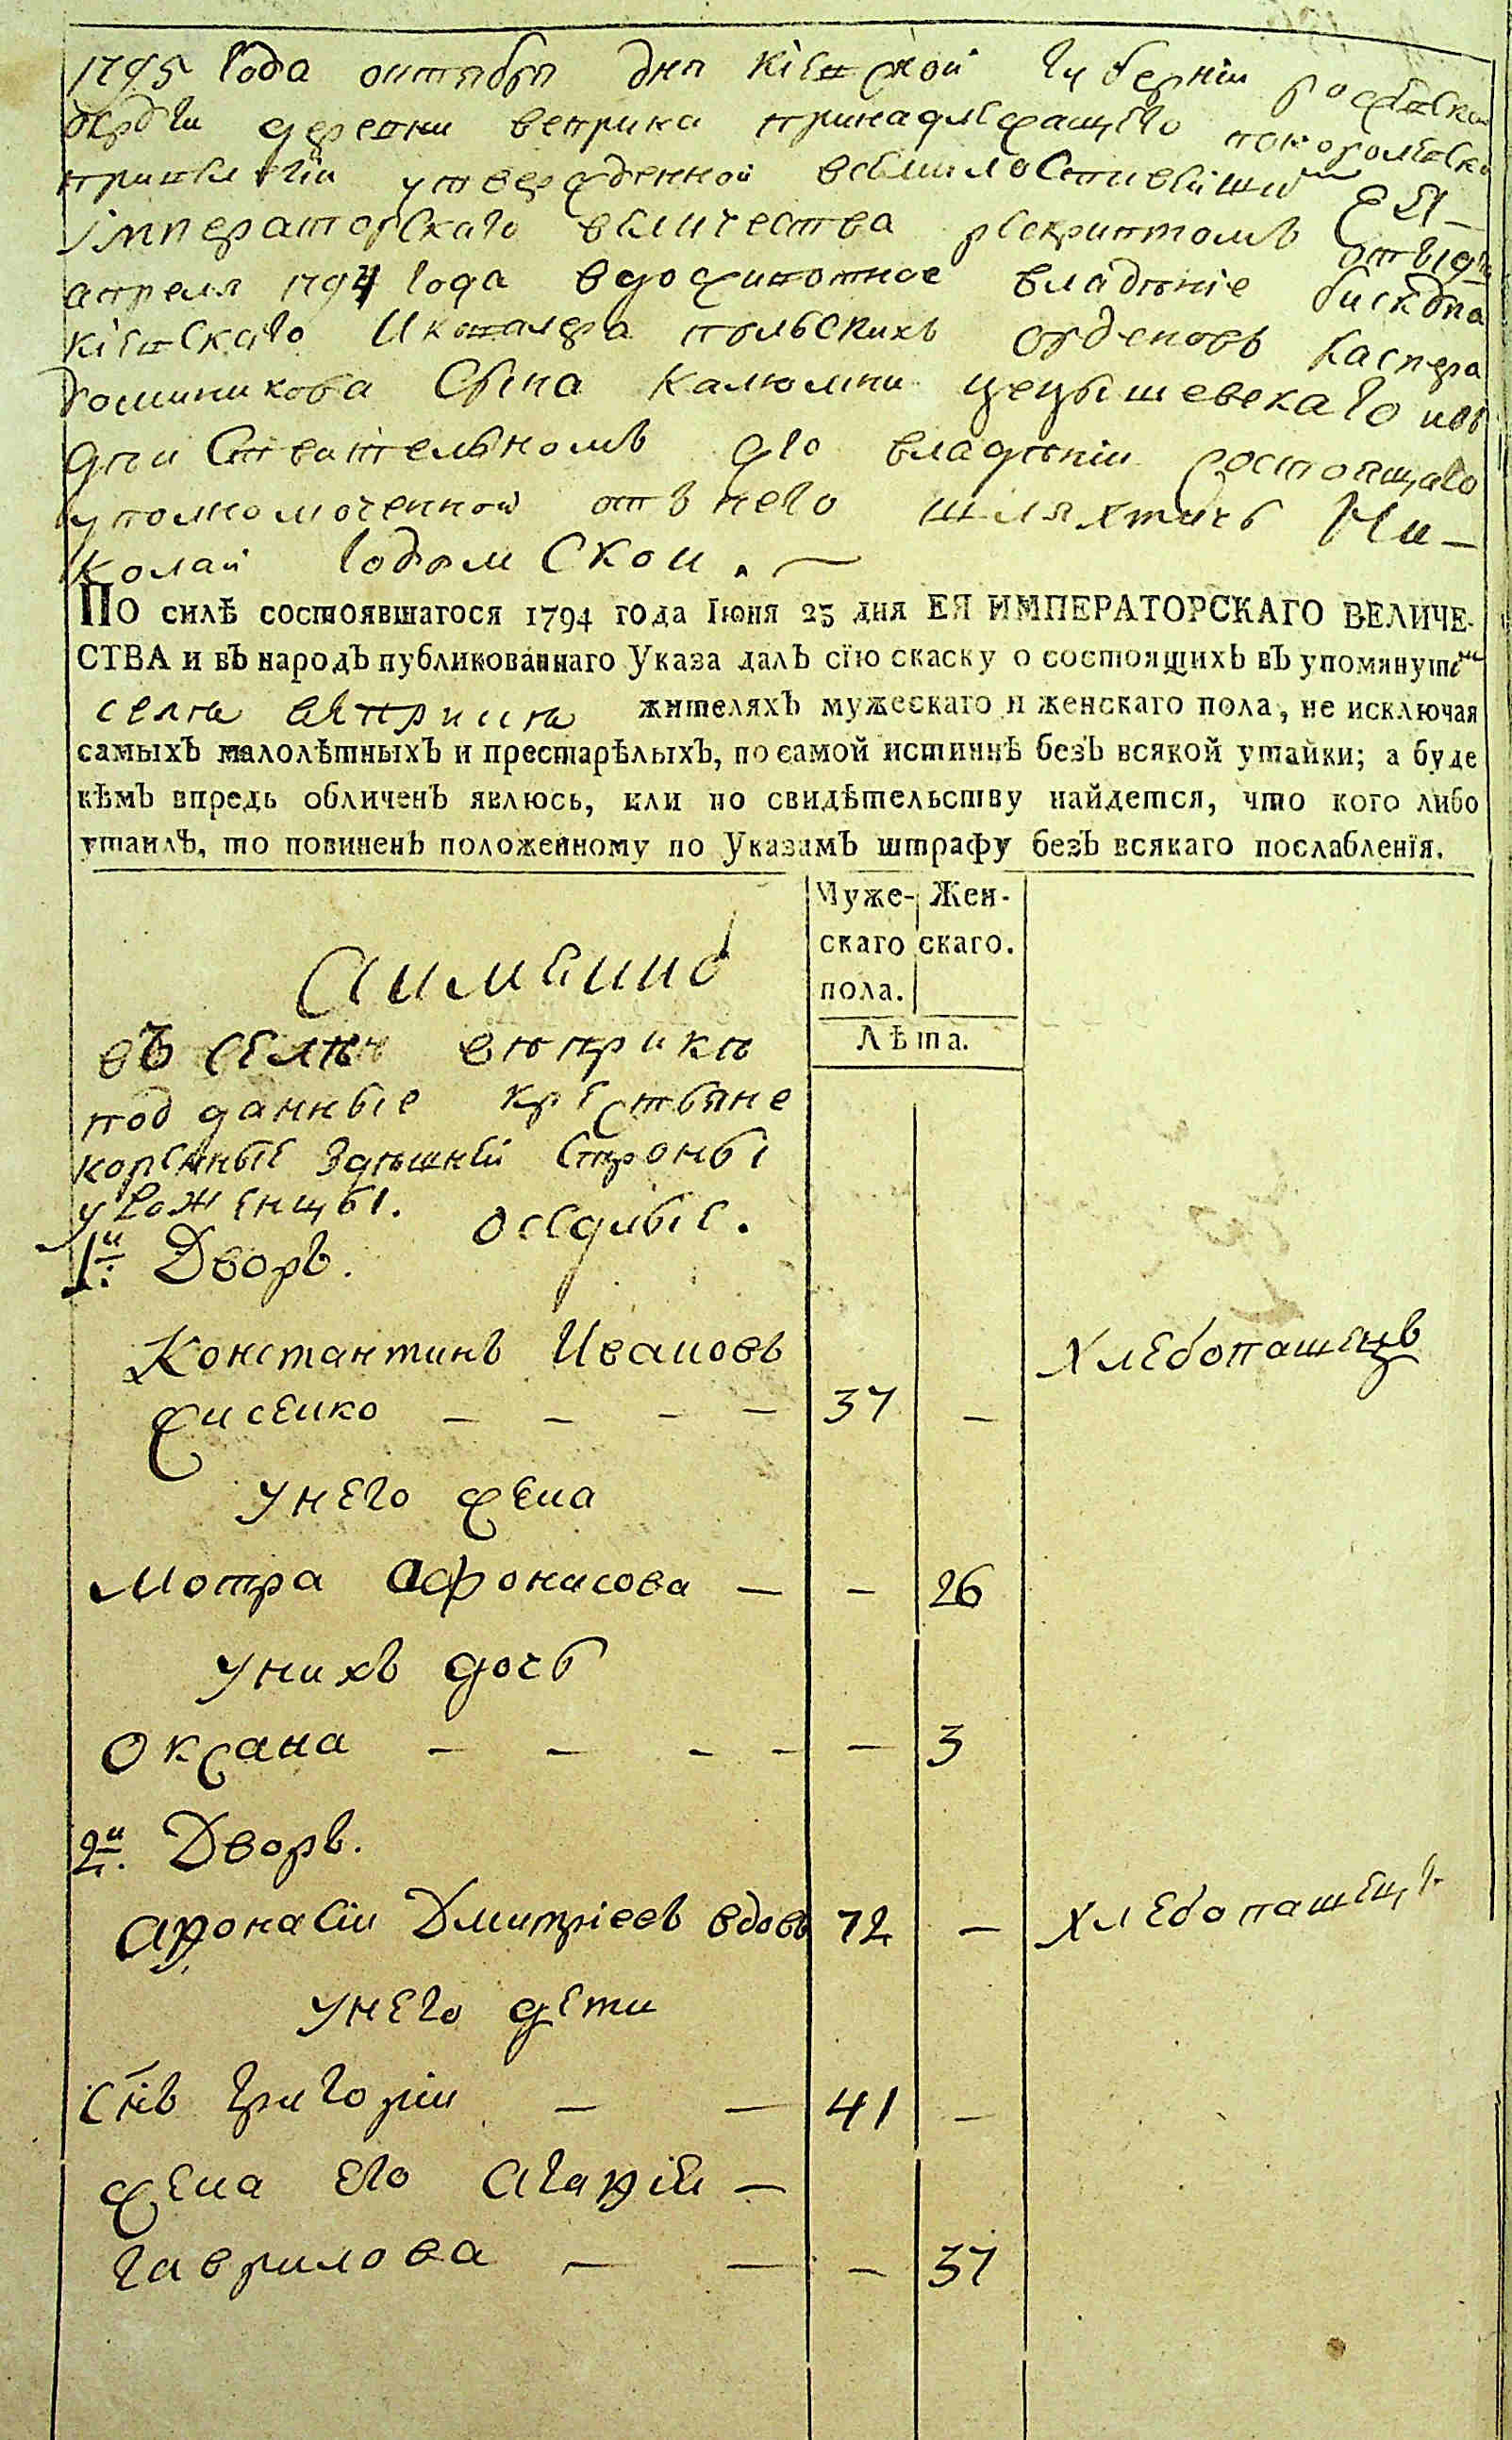 1795 года октября дня кiевской губернiи
округи деревни веприка принадлежащего
привилегiи утвержденной всемилостивейшим ЕЯ
iмператорскаго величества рескриптомъ отъ
апреля 1794 года вдоживотное владѣнiе бискупа
кiевскаго и кавалера польскихъ орденовъ каспера
доминикова сына калюмни цецышевскаго и въ
действительномъ его владѣнiи состоящаго
уполномоченной отъ него шляхтичъ Ни-
колай Годомской.
ПО силѣ состоявшагося 1794 года Iюня 23 дня ЕЯ ИМПЕРАТОРСКАГО ВЕЛИЧЕ-
СТВА и въ народъ публикованнаго Указа далъ сїю скаску о состоящихъ въ упомянутом
селѣ веприка жителяхъ мужескаго и женскаго пола, не исключая
самыхъ малолѣтныхъ и престарѣлыхъ, по самой истиннѣ безъ всякой утайки; а буде
кѣмъ впредь обличенъ явлюсь, или по свидѣтельству найдется, что кого либо
утаилъ, то повиненъ положенному по Указамъ штрафу безъ всякаго послабленїя.
Муже- Жен-
скаго скаго.
пола.
Лѣта.
Аимянно
въ селѣ веприкѣ
подданные крестьяне
коренные здѣшней стороны
уроженцы. оседлые.
1й Дворъ.
Константинъ Ивановъ хлебопашецъ
жисенко — — — — 37 —
унего жена
Мотра Афонасова — — 26
унихъ дочь
Оксана — — — — — 3
2й Дворъ.
Афонасiи Дмитрiевъ вдовъ 72 — хлебопашецъ
унего дети
снъ Григорiи — — 41 —
жена его Агафiя —
Гаврилова — — — 37